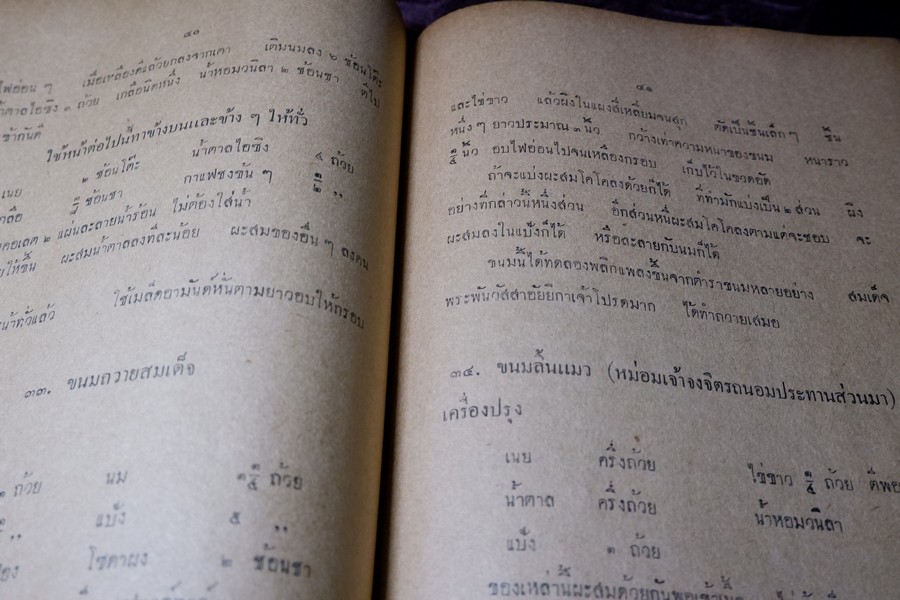 ๔๐
ไฟอ่อน ๆ เมื่อเหลืองดีแล้วยกลงจากเตา เติมนมลง ๖ ช้อนโต๊ะ
น้ำตาลไอซิง ๓ ถ้วย เกลือนิดหนึ่ง น้ำหอมวนิลา ๒ ช้อนชา ตีไป
เข้ากันดี
ใช้หน้าต่อไปนี้ทาข้างบนและข้าง ๆ ให้ทั่ว
เนย ๒ ช้อนโต๊ะ น้ำตาลไอซิง ๔ ถ้วย
ช้อนชา กาแฟชงข้น ๆ ๑/๒ ,,
๒ แผ่นละลายน้ำร้อน ไม่ต้องใส่น้ำ
ให้ขึ้น ผสมน้ำตาลลงทีละน้อย ผสมของอื่น ๆ ลงคน
หน้าทั่วแล้ว ใช้เมล็ดอามันด์หั่นตามยาวอบให้กรอบ
๓๓. ขนมถวายสมเด็จ
๓ ถ้วย นม ๑ ๓/๔ ถ้วย
,, แป้ง ๕ ,,
โซดาผง ๒ ช้อนชา
๔๑
และไข่ขาว แล้วผิงในแผงสี่เหลี่ยมจนสุก ตัดเป็นชิ้นเล็ก ๆ ชิ้น
หนึ่ง ๆ ยาวประมาณ ๓ นิ้ว กว้างเท่าความหนาของขนม หนาราว
๓/๔ นิ้ว อบไฟอ่อนไปจนเหลืองกรอบ เก็บไว้ในขวดอัด
ถ้าจะแบ่งผสมโคโคลงด้วยก็ได้ ที่ทำมักแบ่งเป็น ๒ ส่วน ผิง
อย่างที่กล่าวนี้หนึ่งส่วน อีกส่วนหนึ่งผสมโคโคลงตามแต่จะชอบ จะ
ผสมลงในแป้งก็ได้ หรือละลายกับนมก็ได้
ขนมนี้ได้ทดลองพลิกแพลงขึ้นจากตำราขนมหลายอย่าง สมเด็จ
พระพันวัสสาอัยยิกาเจ้าโปรดมาก ได้ทำถวายเสมอ
๓๔. ขนมลิ้นแมว (หม่อมเจ้าจงจิตรถนอมประทานส่วนมา)
เครื่องปรุง
เนย ครึ่งถ้วย ไข่ขาว ๓/๔ ถ้วย ตีพอ
น้ำตาล ครึ่งถ้วย น้ำหอมวนิลา
แป้ง ๑ ถ้วย
ของเหล่านี้ผสมด้วยกันพอเข้าเนื้อ